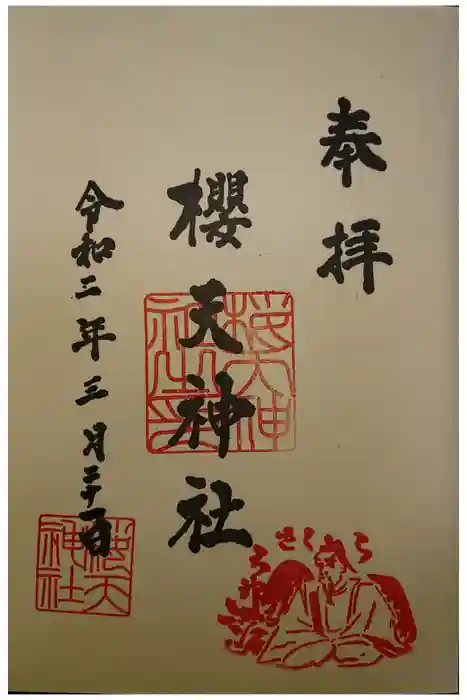 奉拝
櫻天神社
令和二年三月二十一日
櫻天神社之印
櫻天神社
さくら